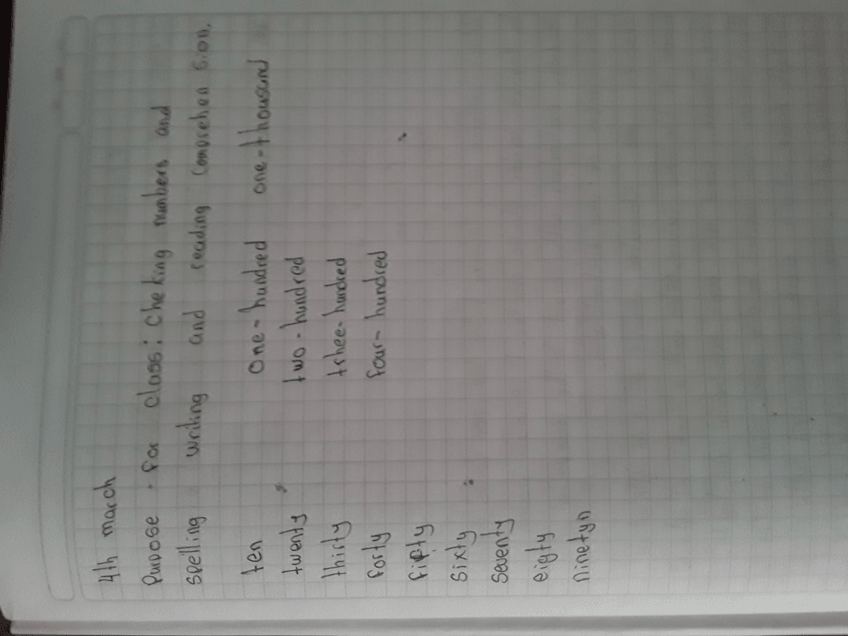 4th march
Purpose · for class: Cheking numbers and
spelling writing and reading Comprehen sion.
ten one-hundred one-thousand
twenty two-hundred
thirty trhee-hundred
forty four-hundred
fifty
sixty
seventy
eigty
ninetyn